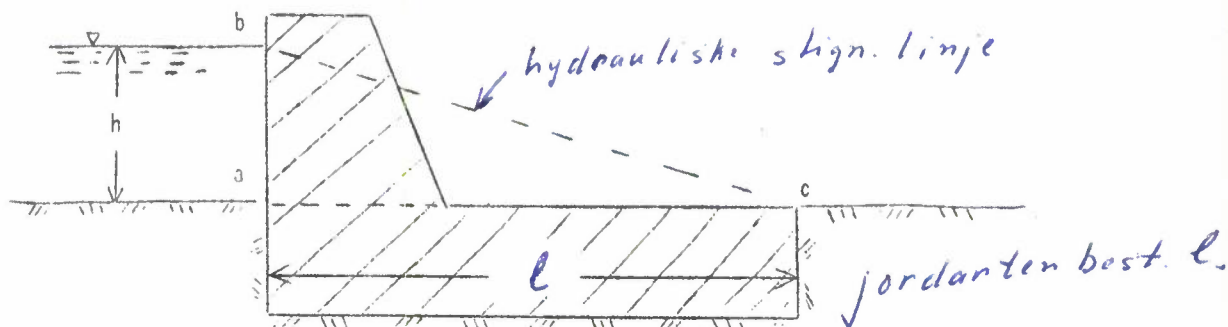 b
hydrauliske stign. linje
h
a
c
l
jordarten best. l.